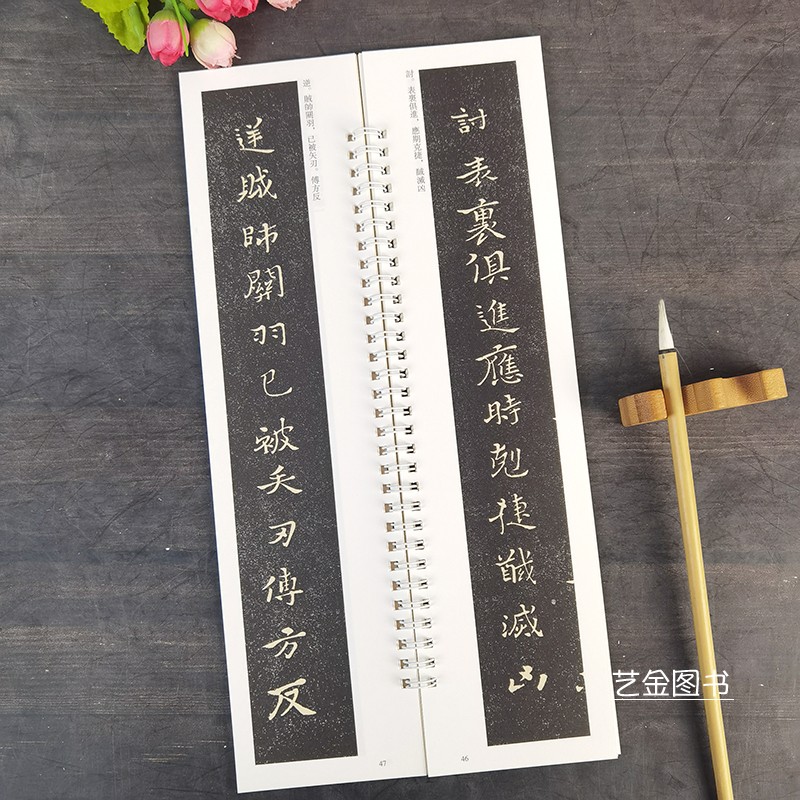 討表裏俱進應時剋捷馘滅凶
討。表裏俱進，應期克捷，馘滅凶
46
逆。賊帥關羽，已被矢刃。傅方反
逆賊帥關羽已被矢刃傅方反
47
艺金图书